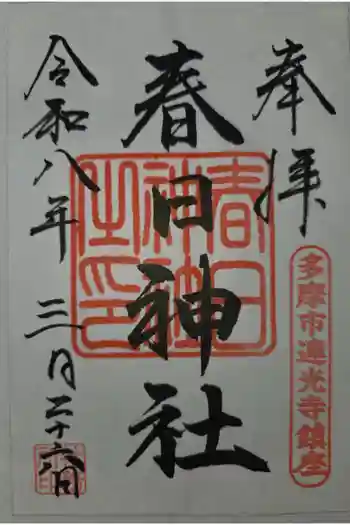 奉拝
多摩市連光寺鎮座
春日神社
春日神社之印
令和八年 三月二十六日